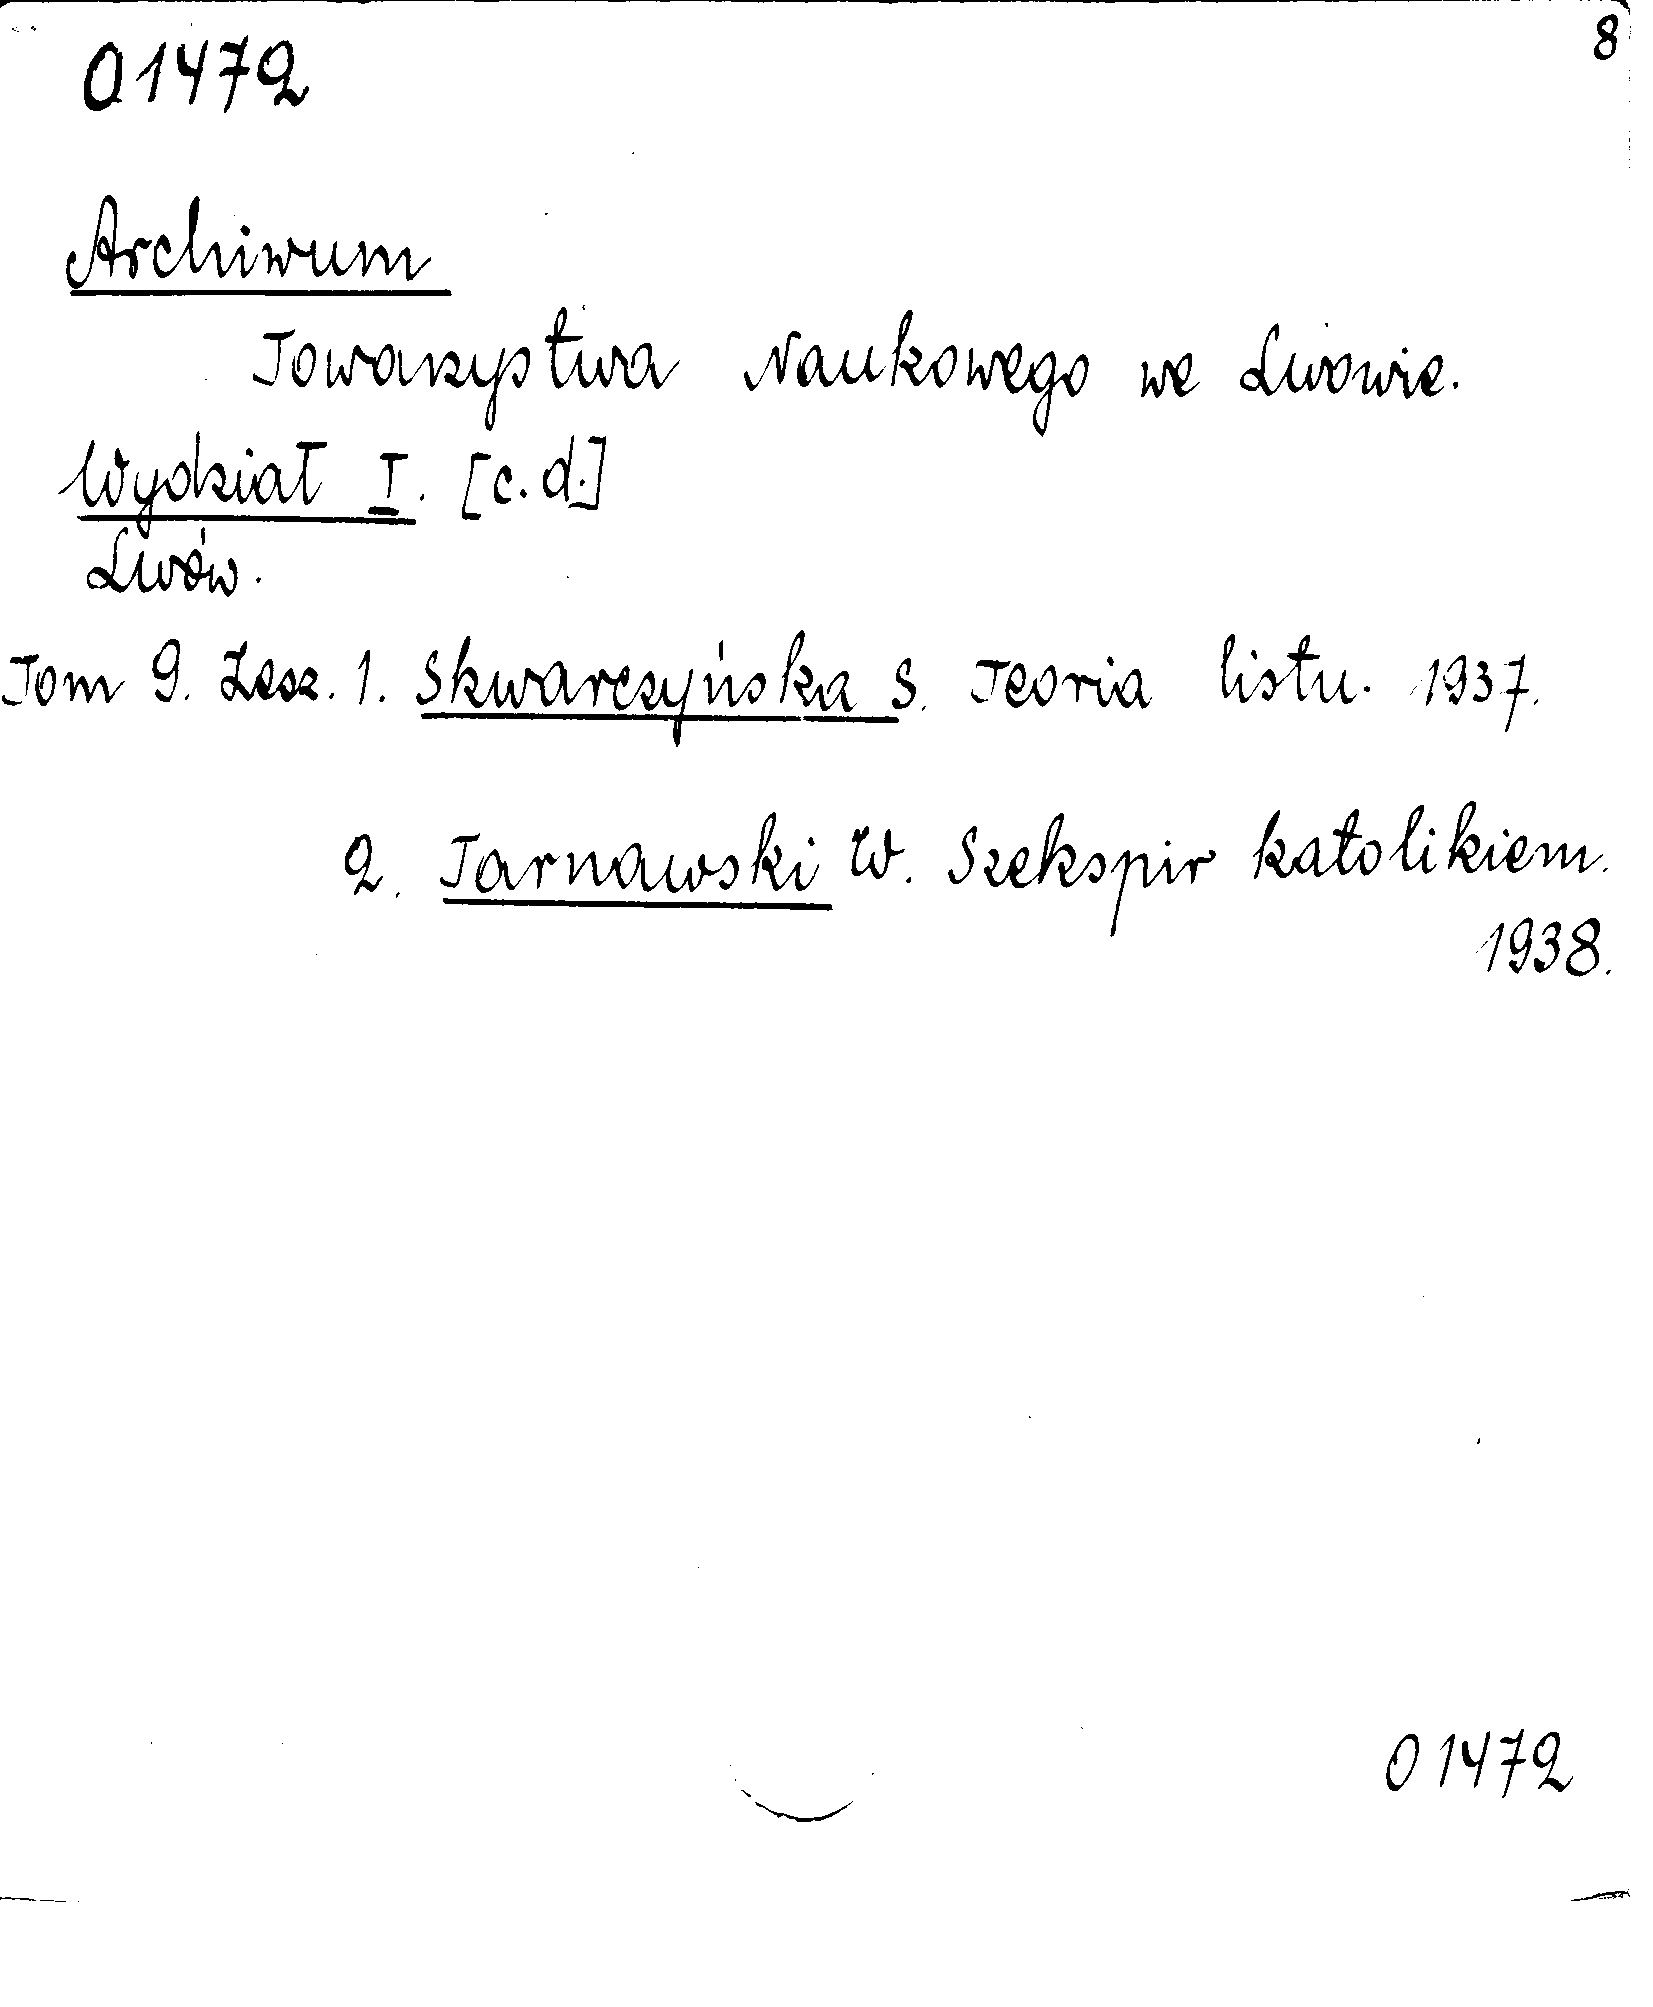 01472
8
Archiwum
Towarzystwa Naukowego we Lwowie.
Wydział I. [c.d.]
Lwów.
Tom 9. Zesz. 1. Skwarczyńska S. Teoria listu. 1937.
2. Tarnawski W. Szekspir katolikiem.
1938.
01472